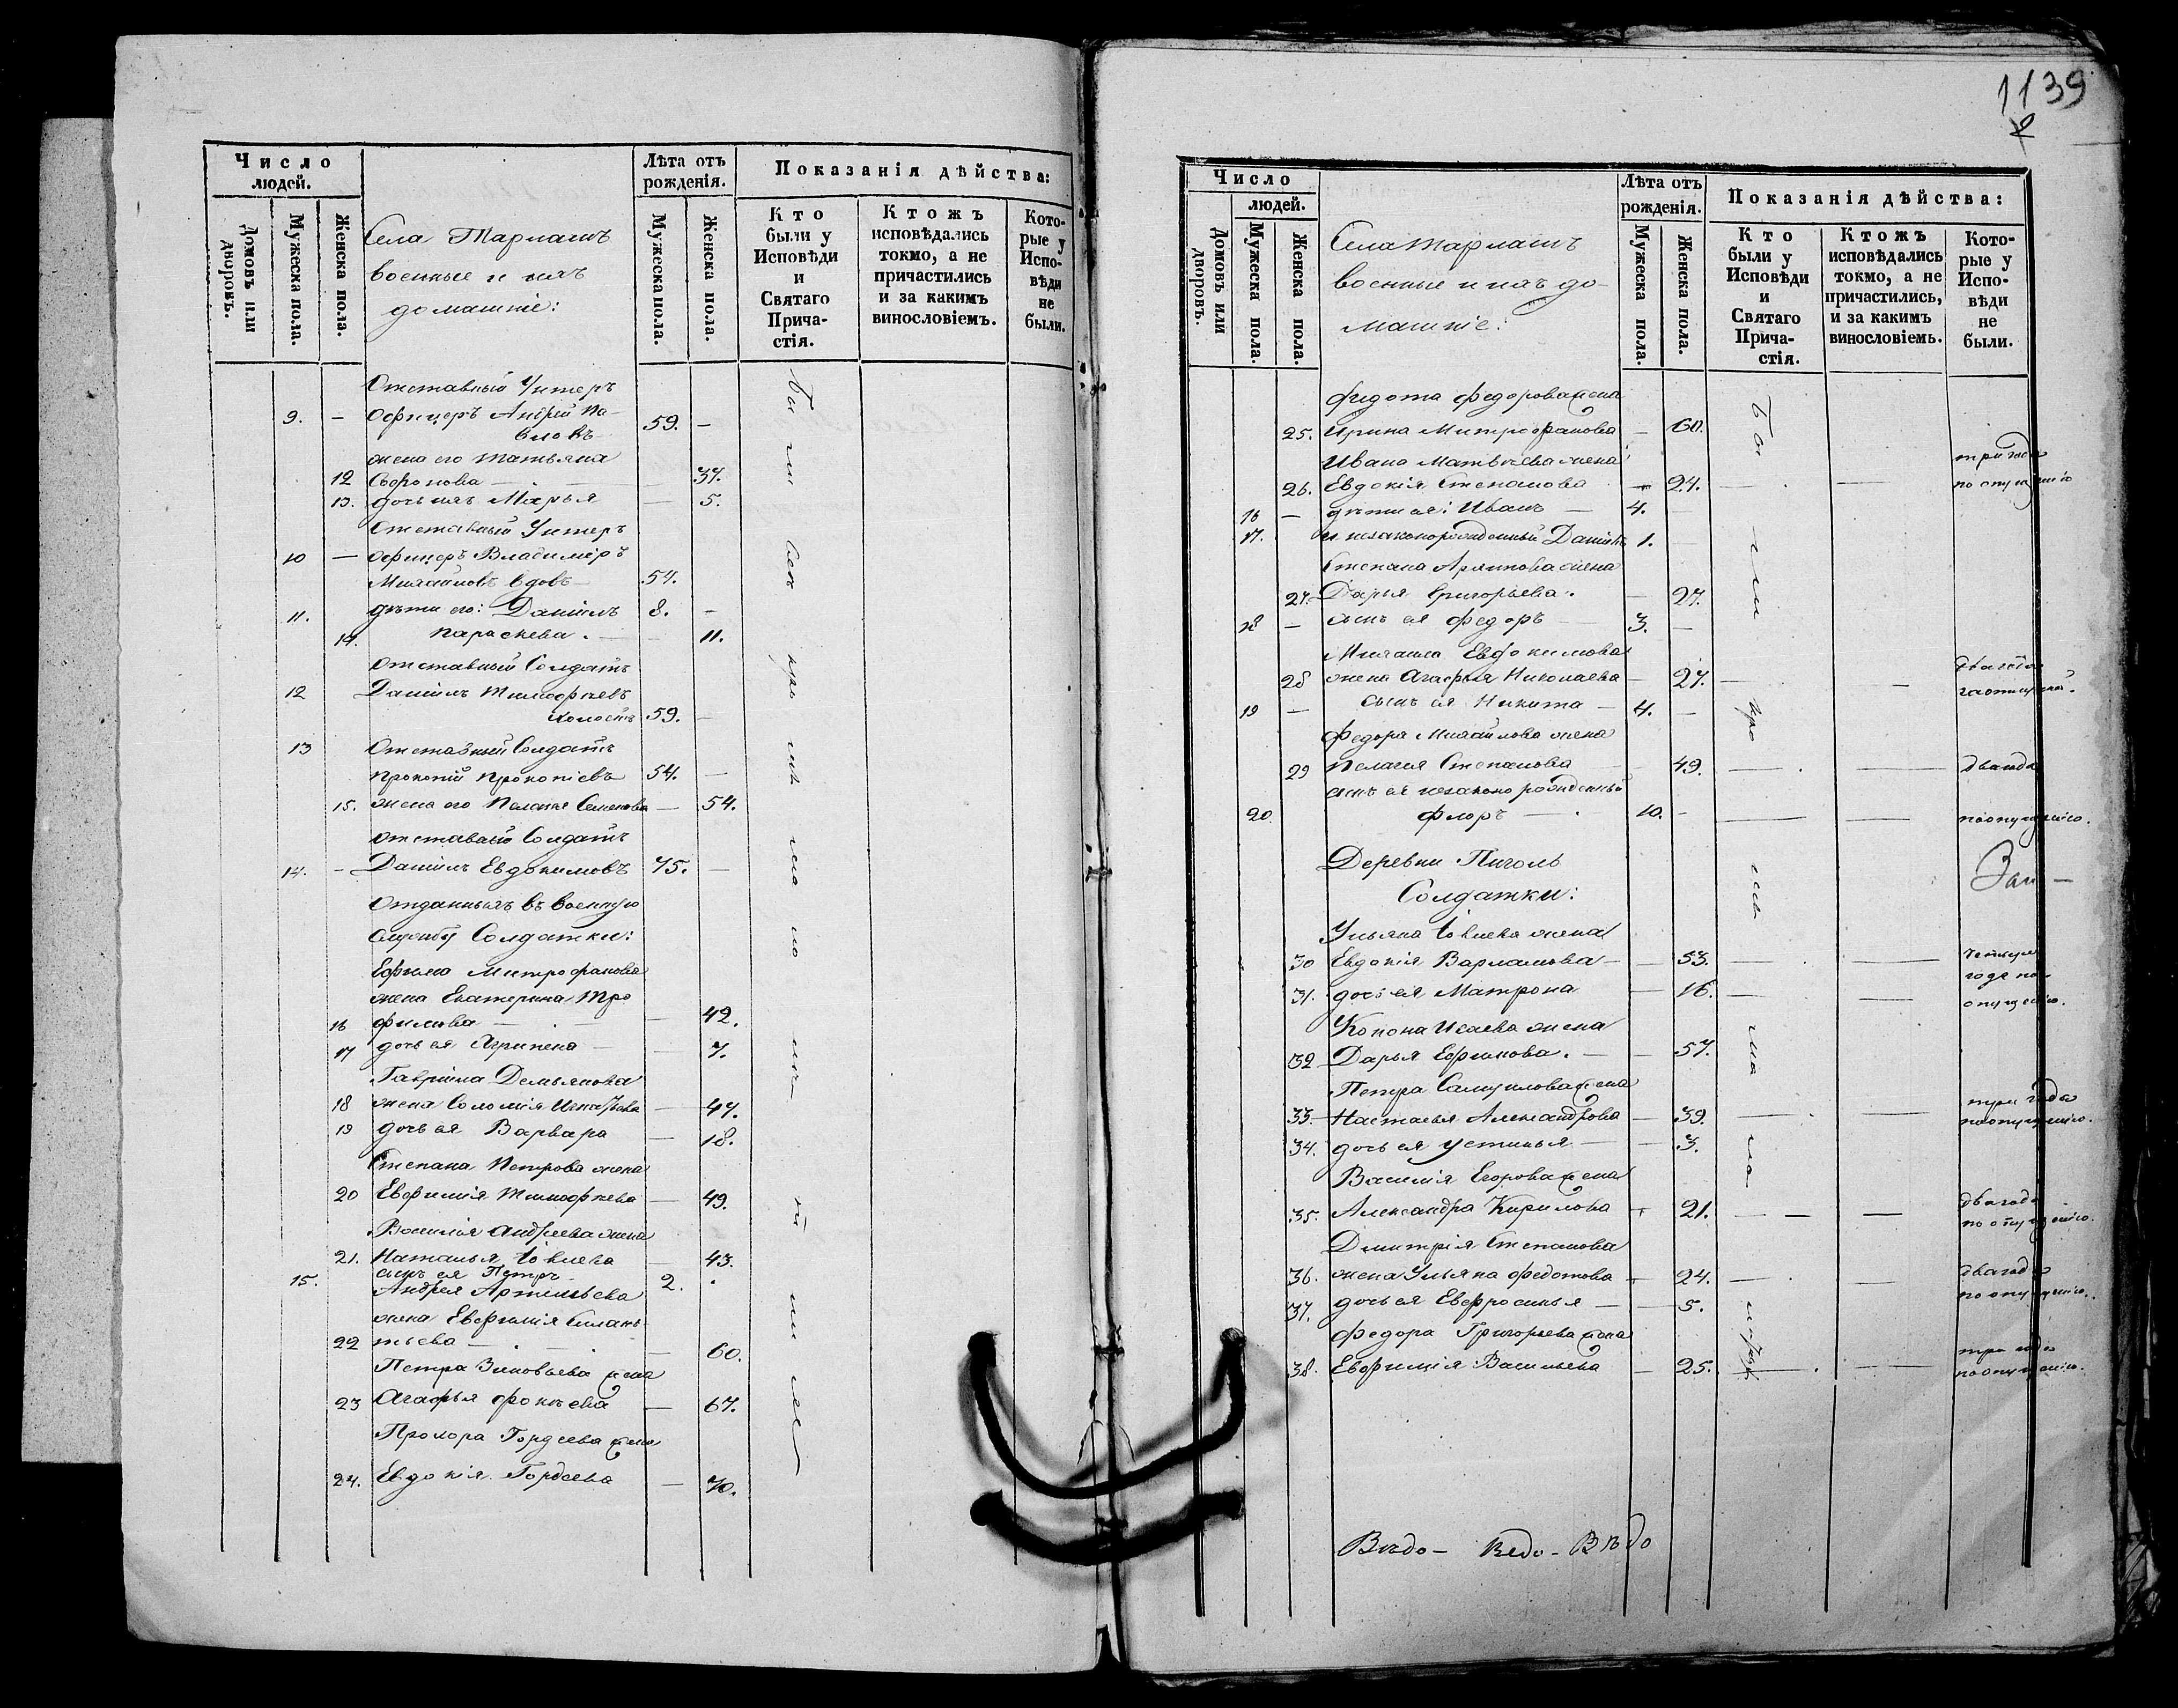 Число
людей.
Домовъ или
дворовъ.
Мужеска пола.
Женска пола.
Села Тарлашъ
военные и ихъ
домашніе:
Лѣта отъ
рожденія.
Мужеска пола.
Женска пола.
Показанія дѣйства:
Кто
были у
Исповѣди
и
Святаго
Прича-
стія.
Ктожъ
исповѣдались
токмо, а не
причастились
и за какимъ
винословіемъ.
Кото-
рые у
Испо-
вѣди
не
были.
Отставный Унтеръ
9. — Офицеръ Андрей Па-
вловъ 59. —
жена его Татьяна
12 Софронова — 37.
13. дочь ихъ Марья — 5.
Отставный Унтеръ
10 — Офицеръ Владиміръ
Михайловъ вдовъ 54.
11. дѣти его: Даніилъ 8. —
14. Параскева. — 11.
Отставный Солдатъ
12 Даніилъ Тимофѣевъ
холостъ 59. —
13 Отставный Солдатъ
Прокопій Прокопіевъ 54. —
15. жена его Пелагья Семенова — 54.
отставный Солдатъ
14. — Даніилъ Евдокимовъ 75. —
Отданныхъ въ военную
службу Солдатки:
Ефима Митрофанова
жена Екатерина Тро
16 фимова — 42.
17 дочь ея Агрипена — 7.
Гавріила Демьянова
18 жена Соломія Игнатьева — 47.
19 дочь ея Варвара — 18.
Степана Петрова жена
20 Евфимія Тимофѣева — 49.
Василія Андреева жена
21. Наталья Іовлева 43.
15. сынъ ея Петръ 2.
Андрея Артемьева
жена Евфимія Силань
22 тьева — 60.
Петра Зиновьева жена
23 Агафья Фокѣева — 67.
Прохора Гордеева жена
24. Евдокія Гордеева — 70.
1139
Число
людей.
Домовъ или
дворовъ.
Мужеска пола.
Женска пола.
Села Тарлашъ
военные и ихъ до-
машніе:
Лѣта отъ
рожденія.
Мужеска пола.
Женска пола.
Показанія дѣйства:
Кто
были у
Исповѣди
и
Святаго
Прича-
стія.
Ктожъ
исповѣдались
токмо, а не
причастились,
и за какимъ
винословіемъ.
Кото-
рые у
Испо-
вѣди
не
были.
Федота Федорова жена
25. Ирина Митрофанова — 60.
Ивана Матвѣева жена три года
26. Евдокія Степанова — 24. — — по опущенію
16 — дѣти ея: Иванъ — 4.
17. и незаконорожденный Даніилъ 1. —
Степана Архипова жена
27. Дарья Григорьева. — 27.
18 — сынъ ея Федоръ — 3. —
Михаила Евдокимова два года
28 жена Агафья Николаева — 27. — —
19 — сынъ ея Никита — 4. —
Федора Михайлова жена
29 Пелагея Степанова 49. — — два года
сынъ ея незаконорожденный
20. Флоръ — 10. — — — по опущенію.
Деревни Пиголь
Солдатки:
Ульяна Іовлева жена
30 Евдокія Варламова — — 53. — — четыре
31. дочь ея Матрона — 16. — — года по
опущенію.
Конона Исаева жена
32 Дарья Ефимова. — — 57.
Петра Самуилова жена три года
33 Настасья Александрова — 39. — — по опущенію.
34. дочь ея Устинья — — 3.
Василія Егорова жена два года
35. Александра Кирилова 21. — — по опущенію.
Дмитрія Степанова
36. жена Ульяна Федотова 24. — — два года
37. дочь ея Евфросинья — — 5. по опущенію.
Федора Григорьева жена три года
38. Евфимія Васильева — 25. — — по опущенію.
Вѣдо- Ведо- Вѣдо